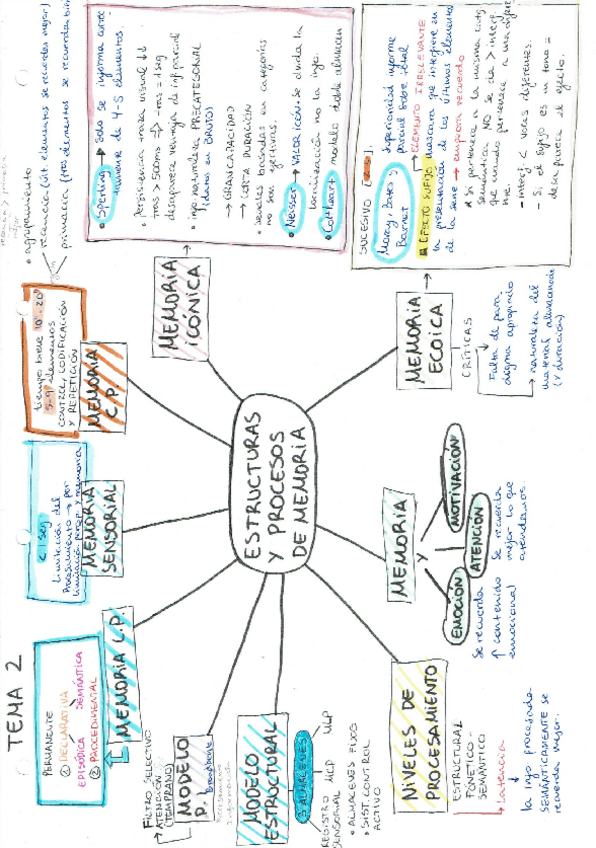 TEMA 2
PERMANENTE
① DECLARATIVA
EPISÓDICA SEMÁNTICA
② PROCEDIMENTAL
MEMORIA L.P.
< 1 seg
Limitación del
procesamiento → por
limitación percep y memoria
MEMORIA
SENSORIAL
tiempo breve 10"-20"
5-9 elementos
CONTROL, CODIFICACIÓN
Y REPETICIÓN
MEMORIA
C.P.
• agrupamiento
recencia (últ. elementos se recuerda mejor)
primacía (tros elementos se recuerda bien)
• Sperling → Solo se informa correc
tamente de 4-5 elementos
• Persistencia traza visual ↓↓
tras > 500ms → tras = 1 seg
desaparece ventaja de inf parcial
• info. naturaleza PRECATEGORIAL
(datos en BRUTO)
→ GRAN CAPACIDAD
→ CORTA DURACIÓN
• señales basadas en categorías
no son efectivas.
• Neisser → VALOR ICÓN: se duda la
localización no la info.
• Coltheart → modelo doble almacén
MEMORIA
ICÓNICA
SUCESIVO [2 sg].
Morey, Bates y
Barnet
Superioridad informe
parcial sobre total
→ ELEMENTO IRRELEVANTE
EFECTO SUFIJO máscara que interfiere en
la presentación de los últimos elementos
de la serie → empeora recuerdo
* Si pertenece a la misma catg
semántica NO se da > interf
que cuando pertenece a una difere
nte.
- interf < voces diferentes.
- Si el sufijo es un tono =
desaparece el efecto.
MEMORIA
ECOICA
CRÍTICAS
Falta de para
digma apropiado
→ naturaleza del
material almacenado
(y duración)
ESTRUCTURAS
Y PROCESOS
DE MEMORIA
MEMORIA
Y
MOTIVACIÓN
ATENCIÓN
Se recuerda
mejor lo que
atendemos
EMOCIÓN
Se recuerda
↑ contenido
emocional
NIVELES DE
PROCESAMIENTO
ESTRUCTURAL
FONÉTICO -
SEMÁNTICO
→ Latencia
la info procesada
SEMÁNTICAMENTE se
recuerda mejor.
MODELO
ESTRUCTURAL
3 ALMACENES
REGISTRO
SENSORIAL
MCP
MLP
• ALMACENES FIJOS
• SIST. CONTROL
ACTIVO
MODELO
P.I.
Broadbent
Procesamiento
Información
FILTRO SELECTIVO
ATENCIÓN
(TEMPRANO)